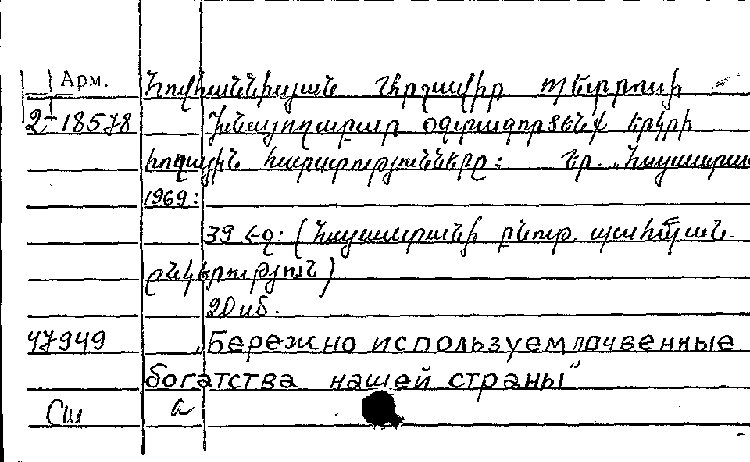 Арм. Հովհաննիսյան Հերչավիր Պետրոսի
2-18578 Խնայողաբար օգտագործենք երկրի
հողային հարստությունները: Եր. „Հայաստա
1969:
39 էջ: (Հայաստանի բնութ. պահպան.
ընկերություն)
20 սմ.
47949 „Бережно используем почвенные
богатства нашей страны"
Сш а